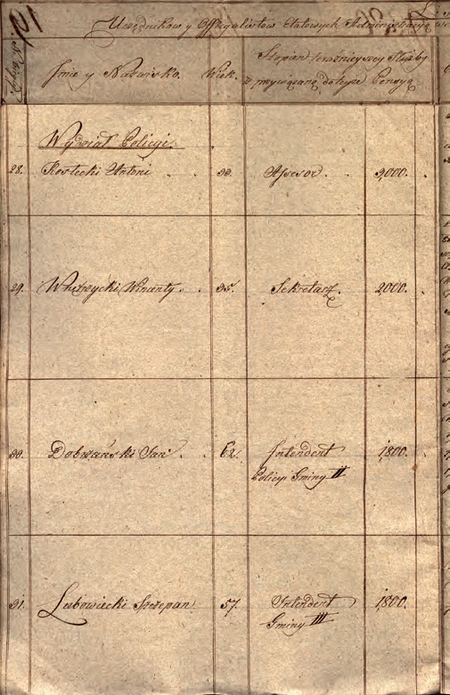 Urzędników y Offycyalistów Etatowych Administracyi
Imie y Nazwisko.
Wiek.
Stopień teraźnieyszey Służby
z przywiązaną do tejże Pensyą
Wydział Policyi.
28. Rostecki Antoni 30. Assesor. 3,000.
29. Wincenty 35. Sekretarz. 2000.
30. Dobrzański Jan 62. Intendent 1,800.
Policyi Gminy II
31. Lubowiecki Szczepan 57. Intendent 1,800.
Gminy III